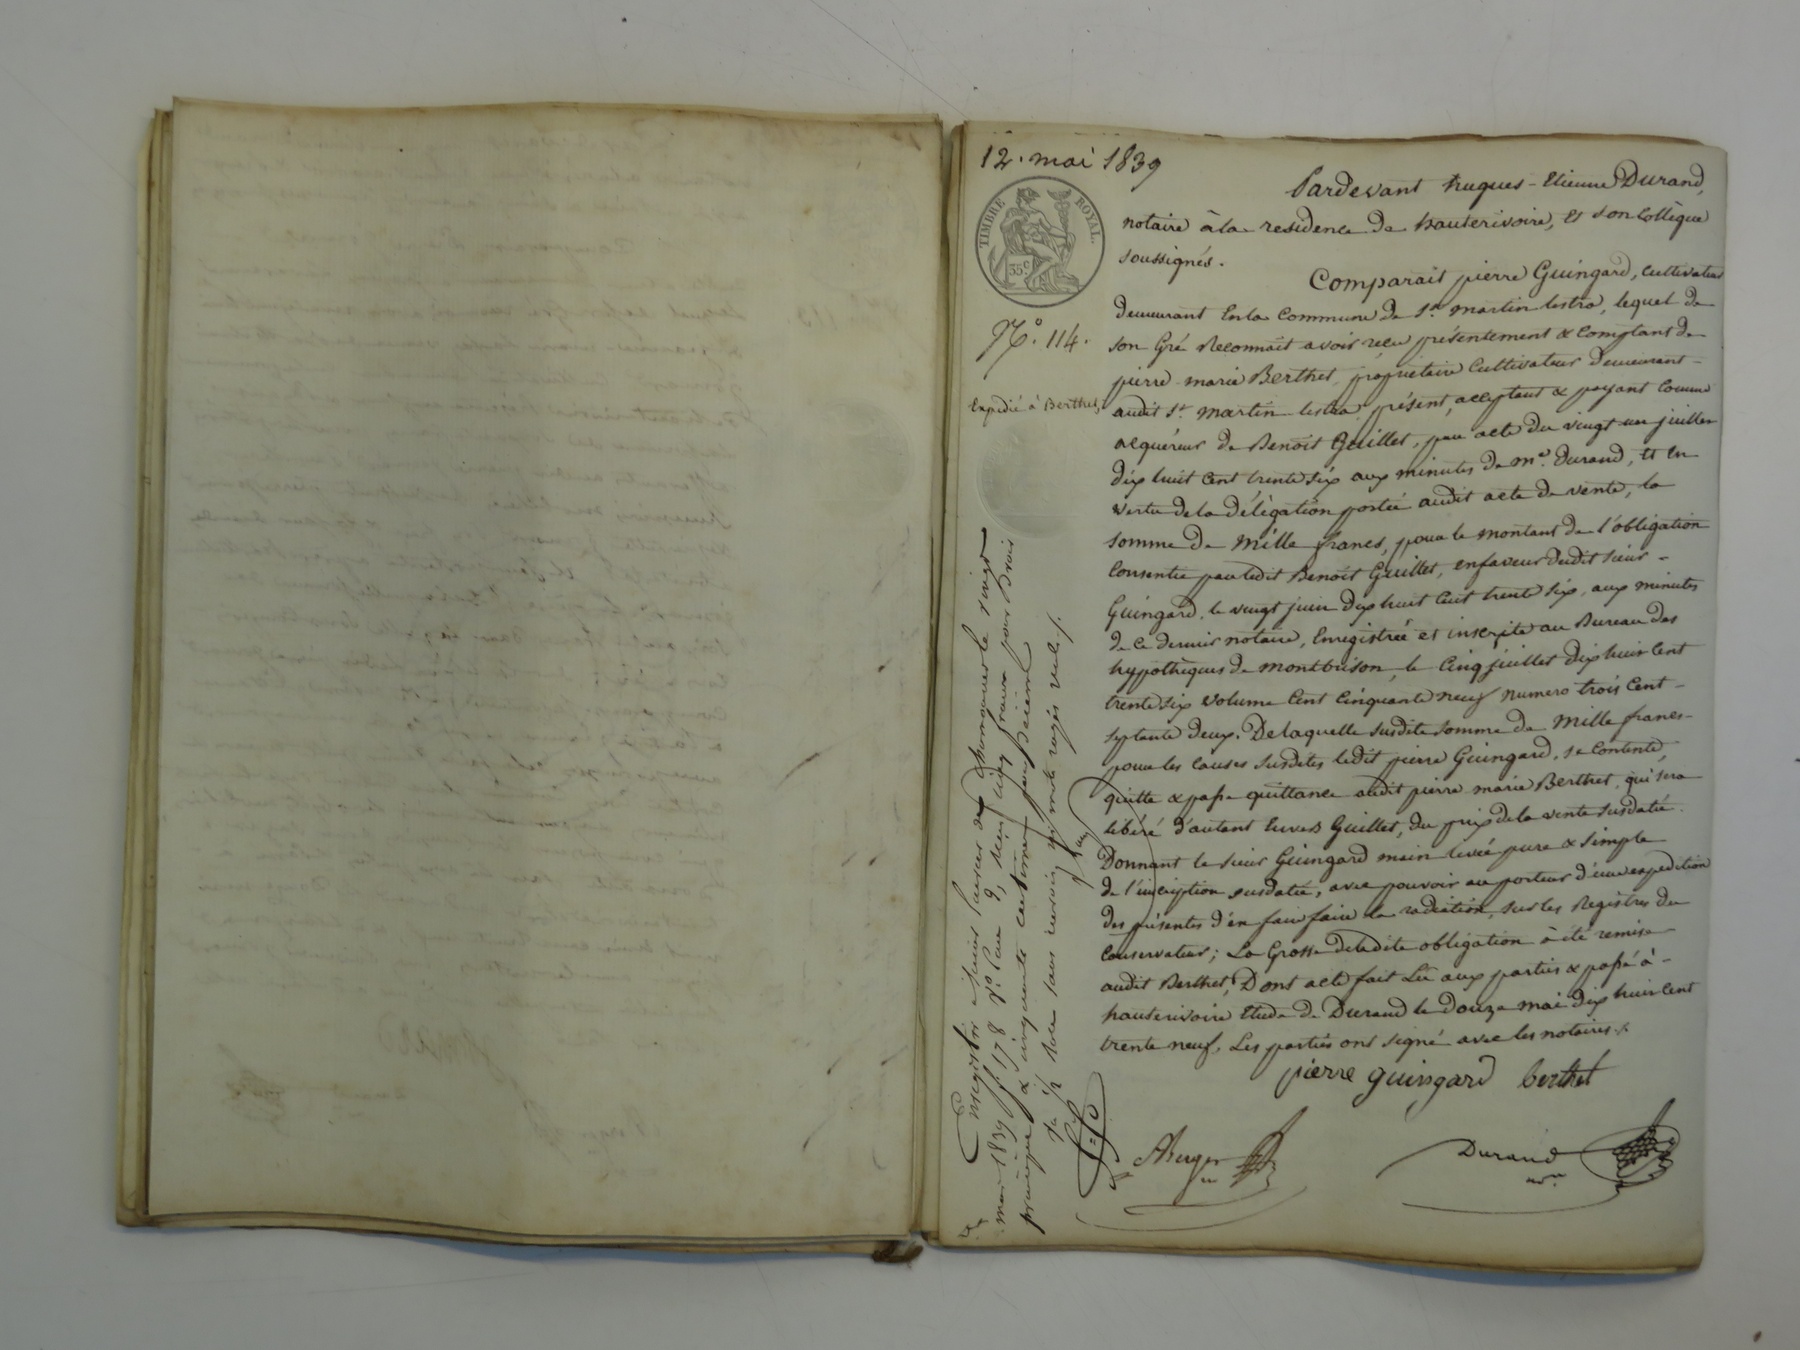 12. mai 1839
TIMBRE ROYAL.
35 c
N.º 114.
Expédié à Berthet,
Pardevant hugues-Etienne Durand,
notaire à la residence de hauterivoire, et son Collègue
soussignés.
Comparait pierre Guingard, cultivateur
demeurant en la Commune de St. martin lestra, lequel de
son Gré Reconnait avoir reçu présentement & comptant de
pierre marie Berthet, propriétaire Cultivateur demeurant
audit St. martin lestra présent, acceptant & payant comme
acquéreur de Benoit Guillet, par acte du vingt un juillet
dix huit cent trente six aux minutes de me. durand, et en
vertu de la délégation portée audit acte de vente, la
somme de Mille francs, pour le montant de l'obligation
consentie par ledit Benoit Guillet, en faveur dudit sieur
Guingard, le vingt juin dix huit cent trente six, aux minutes
de ce dernier notaire, Enregistrée et inscrite au Bureau des
hypothèques de montbrison, le Cinq juillet dix huit Cent
trente six volume Cent cinquante neuf numero trois Cent
septante deux. De laquelle susdite somme de Mille francs
pour les causes susdites ledit pierre Guingard, se contente,
quitte & passe quittance audit pierre marie Berthet, qui sera
libéré d'autant envers Guillet, du prix de la vente susdatée.
Donnant le sieur Guingard main levée pure & simple
de l'inscription susdatée, avec pouvoir au porteur d'une expedition
des présentes d'en faire faire la radiation, sur les Registres du
Conservateur; La Grosse de ladite obligation à été remise
audit Berthet, Dont acte fait Lu aux parties & passé à
hauterivoire Etude de Durand le douze mai dix huit cent
trente neuf, Les parties ont signé avec les notaires./.
pierre guingard berthet
Durand
Enregistré à saint Laurent de Chamousset le vingt
mai 1839 fo. 178 Vo. Case 9, reçu cinq francs pour droit
principal & cinquante centimes pour décime